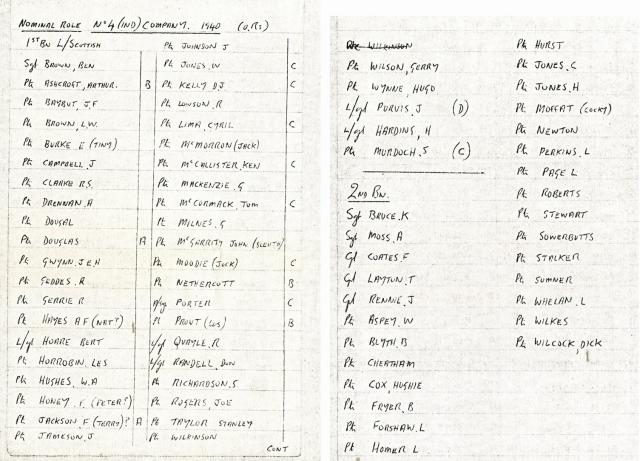 NOMINAL ROLE Nº4 (IND) COMPANY. 1940 (O.Rs)
1ST BN L/SCOTTISH
Sgt BROWN, BEN
Pte ASHCROFT, ARTHUR. B
Pte BAYBUT, J.F
Pte BROWN, L.W.
Pte BURKE E (TINY)
Pte CAMPBELL, J
Pte CLARKE R.S.
Pte DRENNAN. A
Pte DOUGAL
Pte DOUGLAS A
Pte GWYNN. J.E.H
Pte GEDDES. R
Pte GERRIE R
Pte HAYES A F (NAT?)
L/cpl HOARE BERT
Pte HORROBIN, LES
Pte HUGHES, W.A
Pte HONEY. F. (PETER?)
Pte JACKSON, F (TERRY)? A
Pte JAMESON. J
Pte JOHNSON J
Pte JONES. W C
Pte KELLY DJ C
Pte LOWSON. R
Pte LIMA, CYRIL C
Pte McMORRON (JACK)
Pte McCALLISTER, KEN C
Pte MACKENZIE. G
Pte McCORMACK, TOM C
Pte MILNES. G
Pte McGARRITY JOHN (SLEUTH)
Pte MOODIE (JOCK) C
Pte NETHERCOTT B
PORTER C
Pte PROUT (LES) B
L/cpl QUAYLE. R
L/cpl RANDELL, DON
Pte RICHARDSON. S
Pte ROGERS, JOE
Pte TAYLOR STANLEY
Pte WILKINSON
CONT
Pte WILKINSON
Pte WILSON, GERRY
Pte WYNNE, HUGO
L/cpl PURVIS. J (D)
L/cpl HARDING, H
Pte MURDOCH. S (C)
2ND BN.
Sgt BRUCE. K
Sgt MOSS. A
Cpl COATES. F
Cpl LAYTON. T
Cpl RENNIE. J
Pte ASPEY. W
Pte BLYTH. B
Pte CHEATHAM
Pte COX, HUGHIE
Pte FRYER. B
Pte FORSHAW. L
Pte HOMER L
Pte HURST
Pte JONES. C
Pte JONES. H
Pte MOFFAT (COCKY)
Pte NEWTON
Pte PERKINS. L
Pte PAGE L
Pte ROBERTS
Pte STEWART
Pte SOWERBUTTS
Pte STALKER
Pte SUMNER
Pte WHELAN. L
Pte WILKES
Pte WILCOCK, DICK